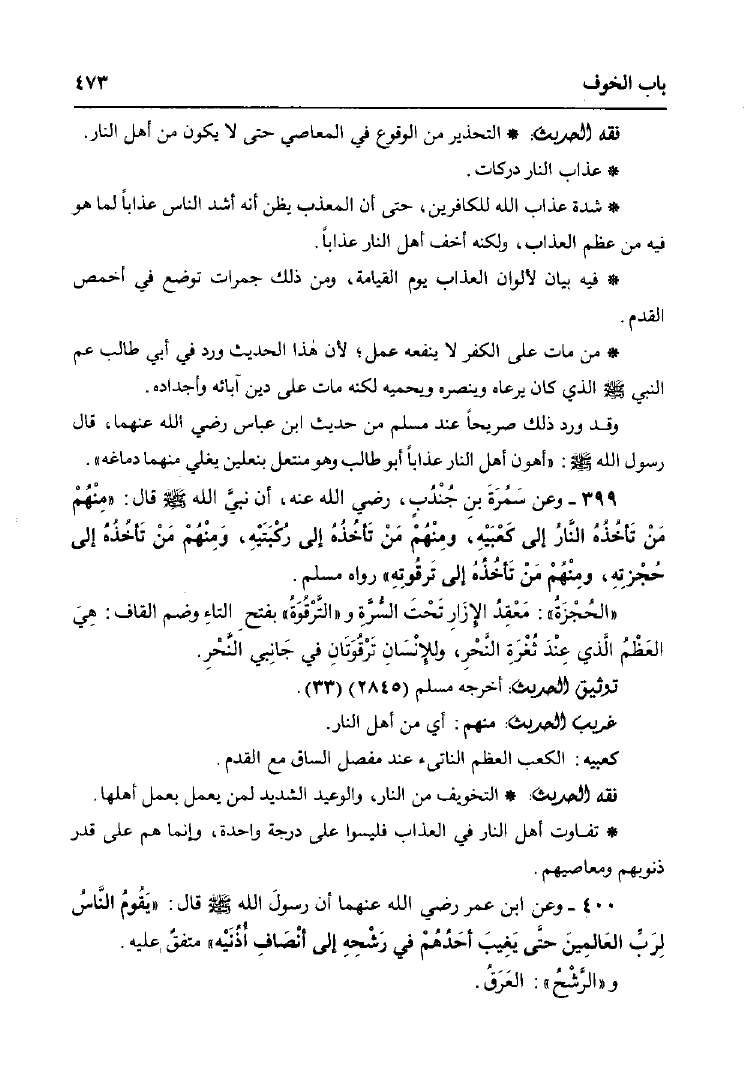 باب الخوف ٤٧٣
فقه الحديث: * التحذير من الوقوع في المعاصي حتى لا يكون من أهل النار.
* عذاب النار دركات.
* شدة عذاب الله للكافرين، حتى أن المعذب يظن أنه أشد الناس عذاباً لما هو
فيه من عظم العذاب، ولكنه أخف أهل النار عذاباً.
* فيه بيان لألوان العذاب يوم القيامة، ومن ذلك جمرات توضع في أخمص
القدم.
* من مات على الكفر لا ينفعه عمل؛ لأن هٰذا الحديث ورد في أبي طالب عم
النبي ﷺ الذي كان يرعاه وينصره ويحميه لكنه مات على دين آبائه وأجداده.
وقد ورد ذلك صريحاً عند مسلم من حديث ابن عباس رضي الله عنهما، قال
رسول الله ﷺ: «أهون أهل النار عذاباً أبو طالب وهو منتعل بنعلين يغلي منهما دماغه».
٣٩٩ - وعن سَمُرَةَ بنِ جُنْدُبٍ، رضي الله عنه، أن نبيَّ الله ﷺ قال: «مِنْهُمْ
مَنْ تَأخُذُهُ النَّارُ إلى كَعْبَيْهِ، ومِنْهُمْ مَنْ تَأخُذُهُ إلى رُكْبَتَيْهِ، وَمِنْهُمْ مَنْ تَأخُذُهُ إلى
حُجْزتِهِ، ومِنْهُمْ مَنْ تَأخُذُهُ إلى تَرقُوتِهِ» رواه مسلم.
«الحُجْزَةُ»: مَعْقِدُ الإزَارِ تَحْتَ السُّرَّةِ و «التَّرْقُوَةُ» بفتحِ التاءِ وضم القاف: هِيَ
العَظْمُ الَّذي عِنْدَ ثُغْرَةِ النَّحْرِ، وللإنْسَانِ تَرْقُوَتَانِ في جَانِبي النَّحْرِ.
توثيق الحديث: أخرجه مسلم (٢٨٤٥) (٣٣).
غريب الحديث: منهم: أي من أهل النار.
كعبيه: الكعب العظم الناتىء عند مفصل الساق مع القدم.
فقه الحديث: * التخويف من النار، والوعيد الشديد لمن يعمل بعمل أهلها.
* تفاوت أهل النار في العذاب فليسوا على درجة واحدة، وإنما هم على قدر
ذنوبهم ومعاصيهم.
٤٠٠ - وعن ابن عمر رضي الله عنهما أن رسولَ الله ﷺ قال: «يَقُومُ النَّاسُ
لِرَبِّ العَالمِينَ حتَّى يَغِيبَ أحَدُهُمْ في رَشْحِهِ إلى أنْصَافِ أُذُنَيْهِ» متفقٌ عليه.
و «الرَّشْحُ»: العَرَقُ.